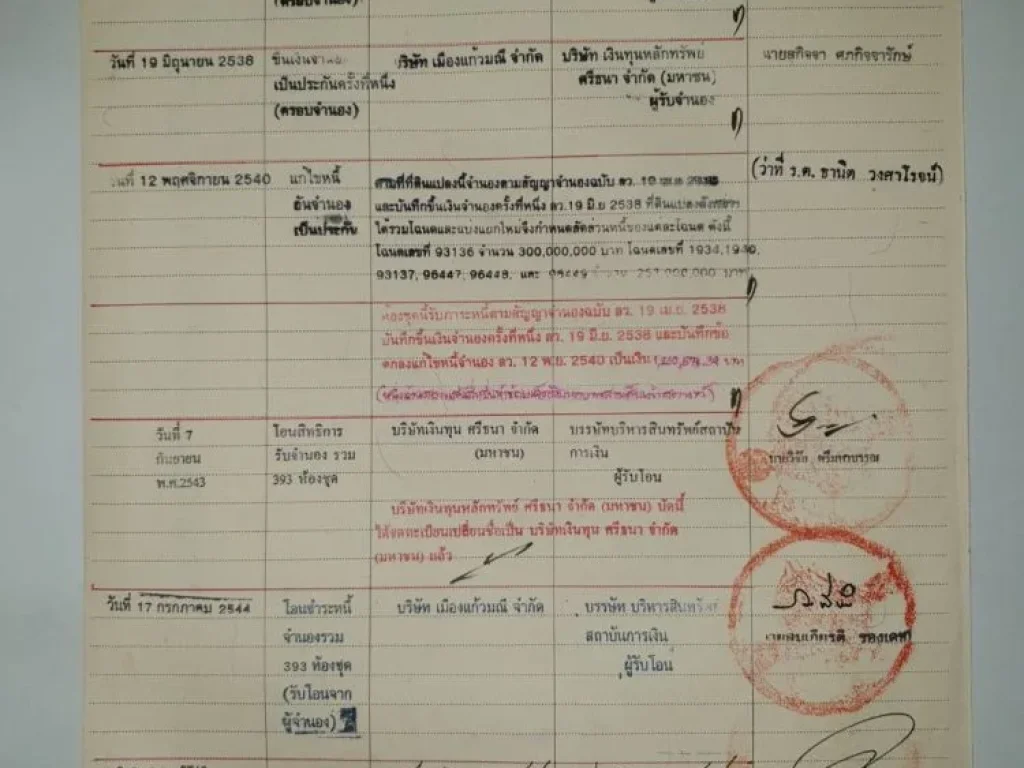 (ครอบจำนอง)
วันที่ 19 มิถุนายน 2538
ขึ้นเงินจำนอง
เป็นประกันครั้งที่หนึ่ง
(ครอบจำนอง)
บริษัท เมืองแก้วมณี จำกัด
บริษัท เงินทุนหลักทรัพย์
ศรีธนา จำกัด (มหาชน)
ผู้รับจำนอง
นายสกิจจา ศภกิจจารักษ์
วันที่ 12 พฤศจิกายน 2540
แก้ไขหนี้
อันจำนอง
เป็นประกัน
ตามที่ที่ดินแปลงนี้จำนองตามสัญญาจำนองฉบับ ลว. 19
และบันทึกขึ้นเงินจำนองครั้งที่หนึ่ง ลว.19 มิย 2538 ที่ดินแปลงดังกล่าว
ได้รวมโฉนดและแบ่งแยกใหม่จึงกำหนดสัดส่วนหนี้ของแต่ละโฉนด ดังนี้
โฉนดเลขที่ 93136 จำนวน 300,000,000 บาท โฉนดเลขที่ 1934,1940,
93137, 96447, 96448, และ 96449 จำนวน 257,000,000 บาท
(ว่าที่ ร.ต. ธานิต วงศาโรจน์)
ห้องชุดนี้รับภาระหนี้ตามสัญญาจำนองฉบับ ลว. 19 เม.ย. 2538
บันทึกขึ้นเงินจำนองครั้งที่หนึ่ง ลว. 19 มิ.ย. 2538 และบันทึกข้อ
ตกลงแก้ไขหนี้จำนอง ลว. 12 พ.ย. 2540 เป็นเงิน บาท
วันที่ 7
กันยายน
พ.ศ.2543
โอนสิทธิการ
รับจำนอง รวม
393 ห้องชุด
บริษัทเงินทุน ศรีธนา จำกัด
(มหาชน)
บรรษัทบริหารสินทรัพย์สถาบัน
การเงิน
ผู้รับโอน
นายวิชัย
บริษัทเงินทุนหลักทรัพย์ ศรีธนา จำกัด (มหาชน) บัดนี้
ได้จดทะเบียนเปลี่ยนชื่อเป็น บริษัทเงินทุน ศรีธนา จำกัด
(มหาชน) แล้ว
วันที่ 17 กรกฎาคม 2544
โอนชำระหนี้
จำนองรวม
393 ห้องชุด
(รับโอนจาก
ผู้จำนอง)
บริษัท เมืองแก้วมณี จำกัด
บรรษัท บริหารสินทรัพย์
สถาบันการเงิน
ผู้รับโอน
นายสมเกียรติ รองเดช